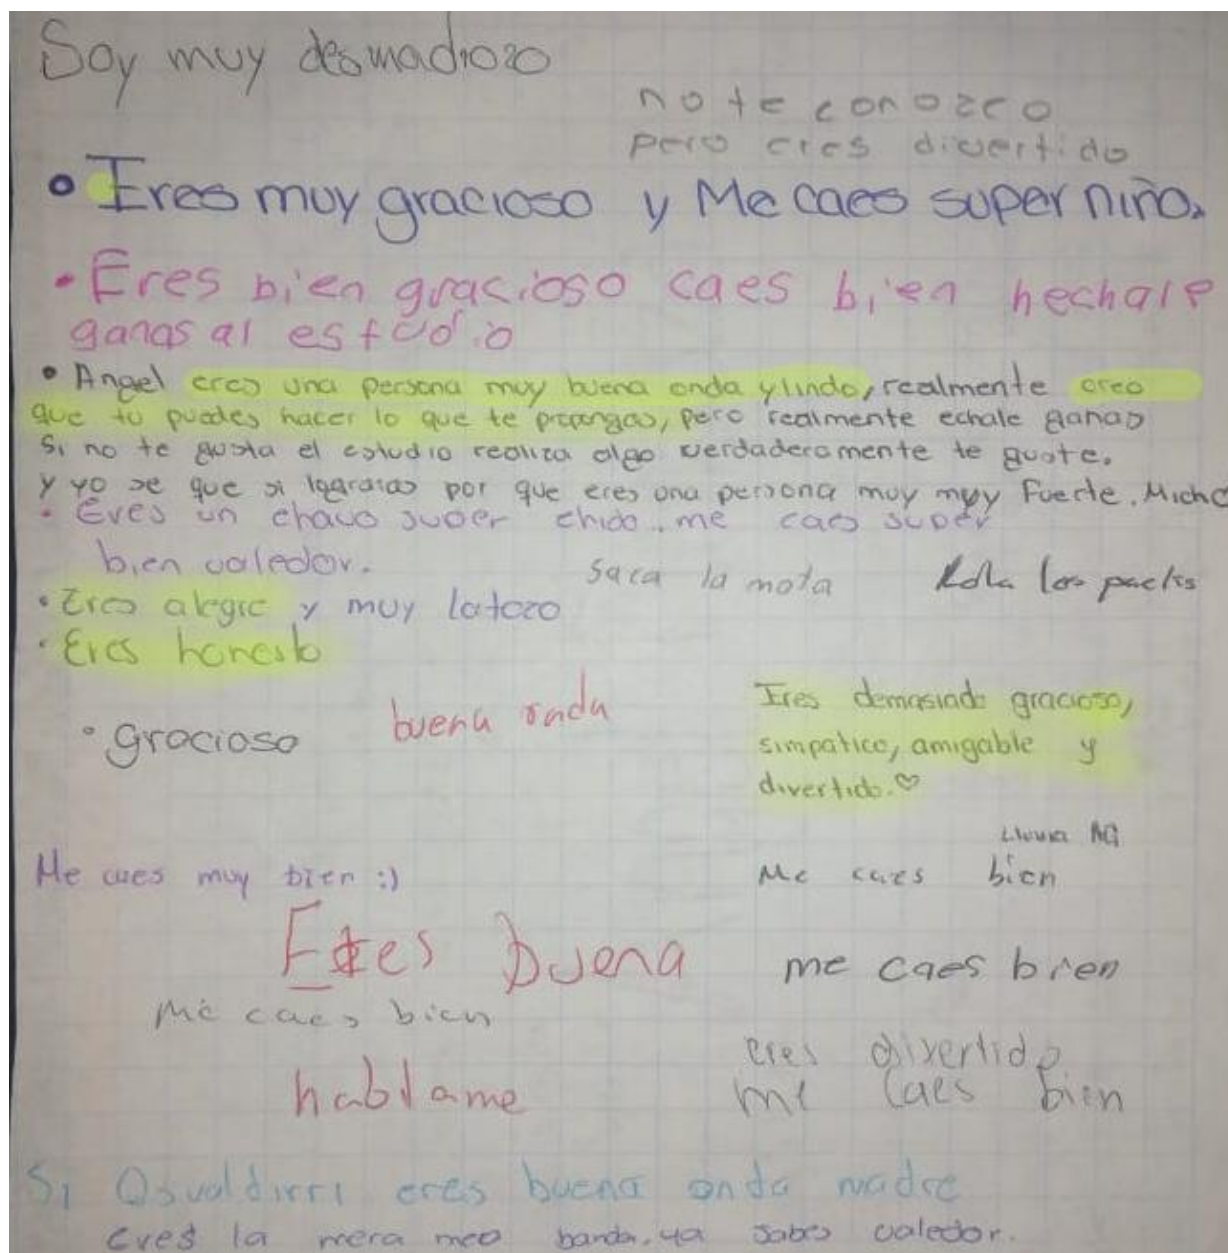 Soy muy desmadrozo
no te conozco
pero eres divertido
• Eres muy gracioso y Me caes super niño.
• Eres bien gracioso caes bien hechale
ganas al estudio
• Angel eres una persona muy buena onda y lindo, realmente creo
que tu puedes hacer lo que te propongas, pero realmente echale ganas
Si no te gusta el estudio realiza algo verdaderamente te guste.
y yo se que si lograras por que eres una persona muy muy Fuerte. Micho
• Eres un chavo super chido. me caes super
bien valedor.
saca la mota
Rola los packs
• Eres alegre y muy latozo
• Eres honesto
• gracioso
buena onda
Eres demasiado gracioso,
simpatico, amigable y
divertido. ♡
Me caes muy bien :)
Lluvia AG
Me caes bien
Eres buena
me caes bien
Me caes bien
eres divertido
hablame
me caes bien
Si Osvaldirri eres buena onda madre
eres la mera banda. ya sabes valedor.